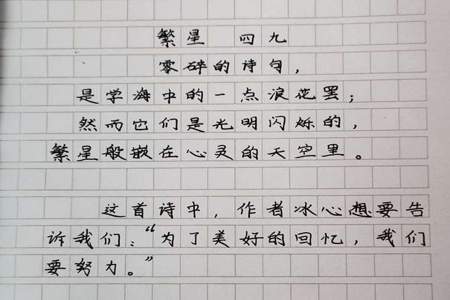 繁星 四九
零碎的诗句，
是学海中的一点浪花罢；
然而它们是光明闪烁的，
繁星般嵌在心灵的天空里。
这首诗中，作者冰心想要告
诉我们：“为了美好的回忆，我们
要努力。”